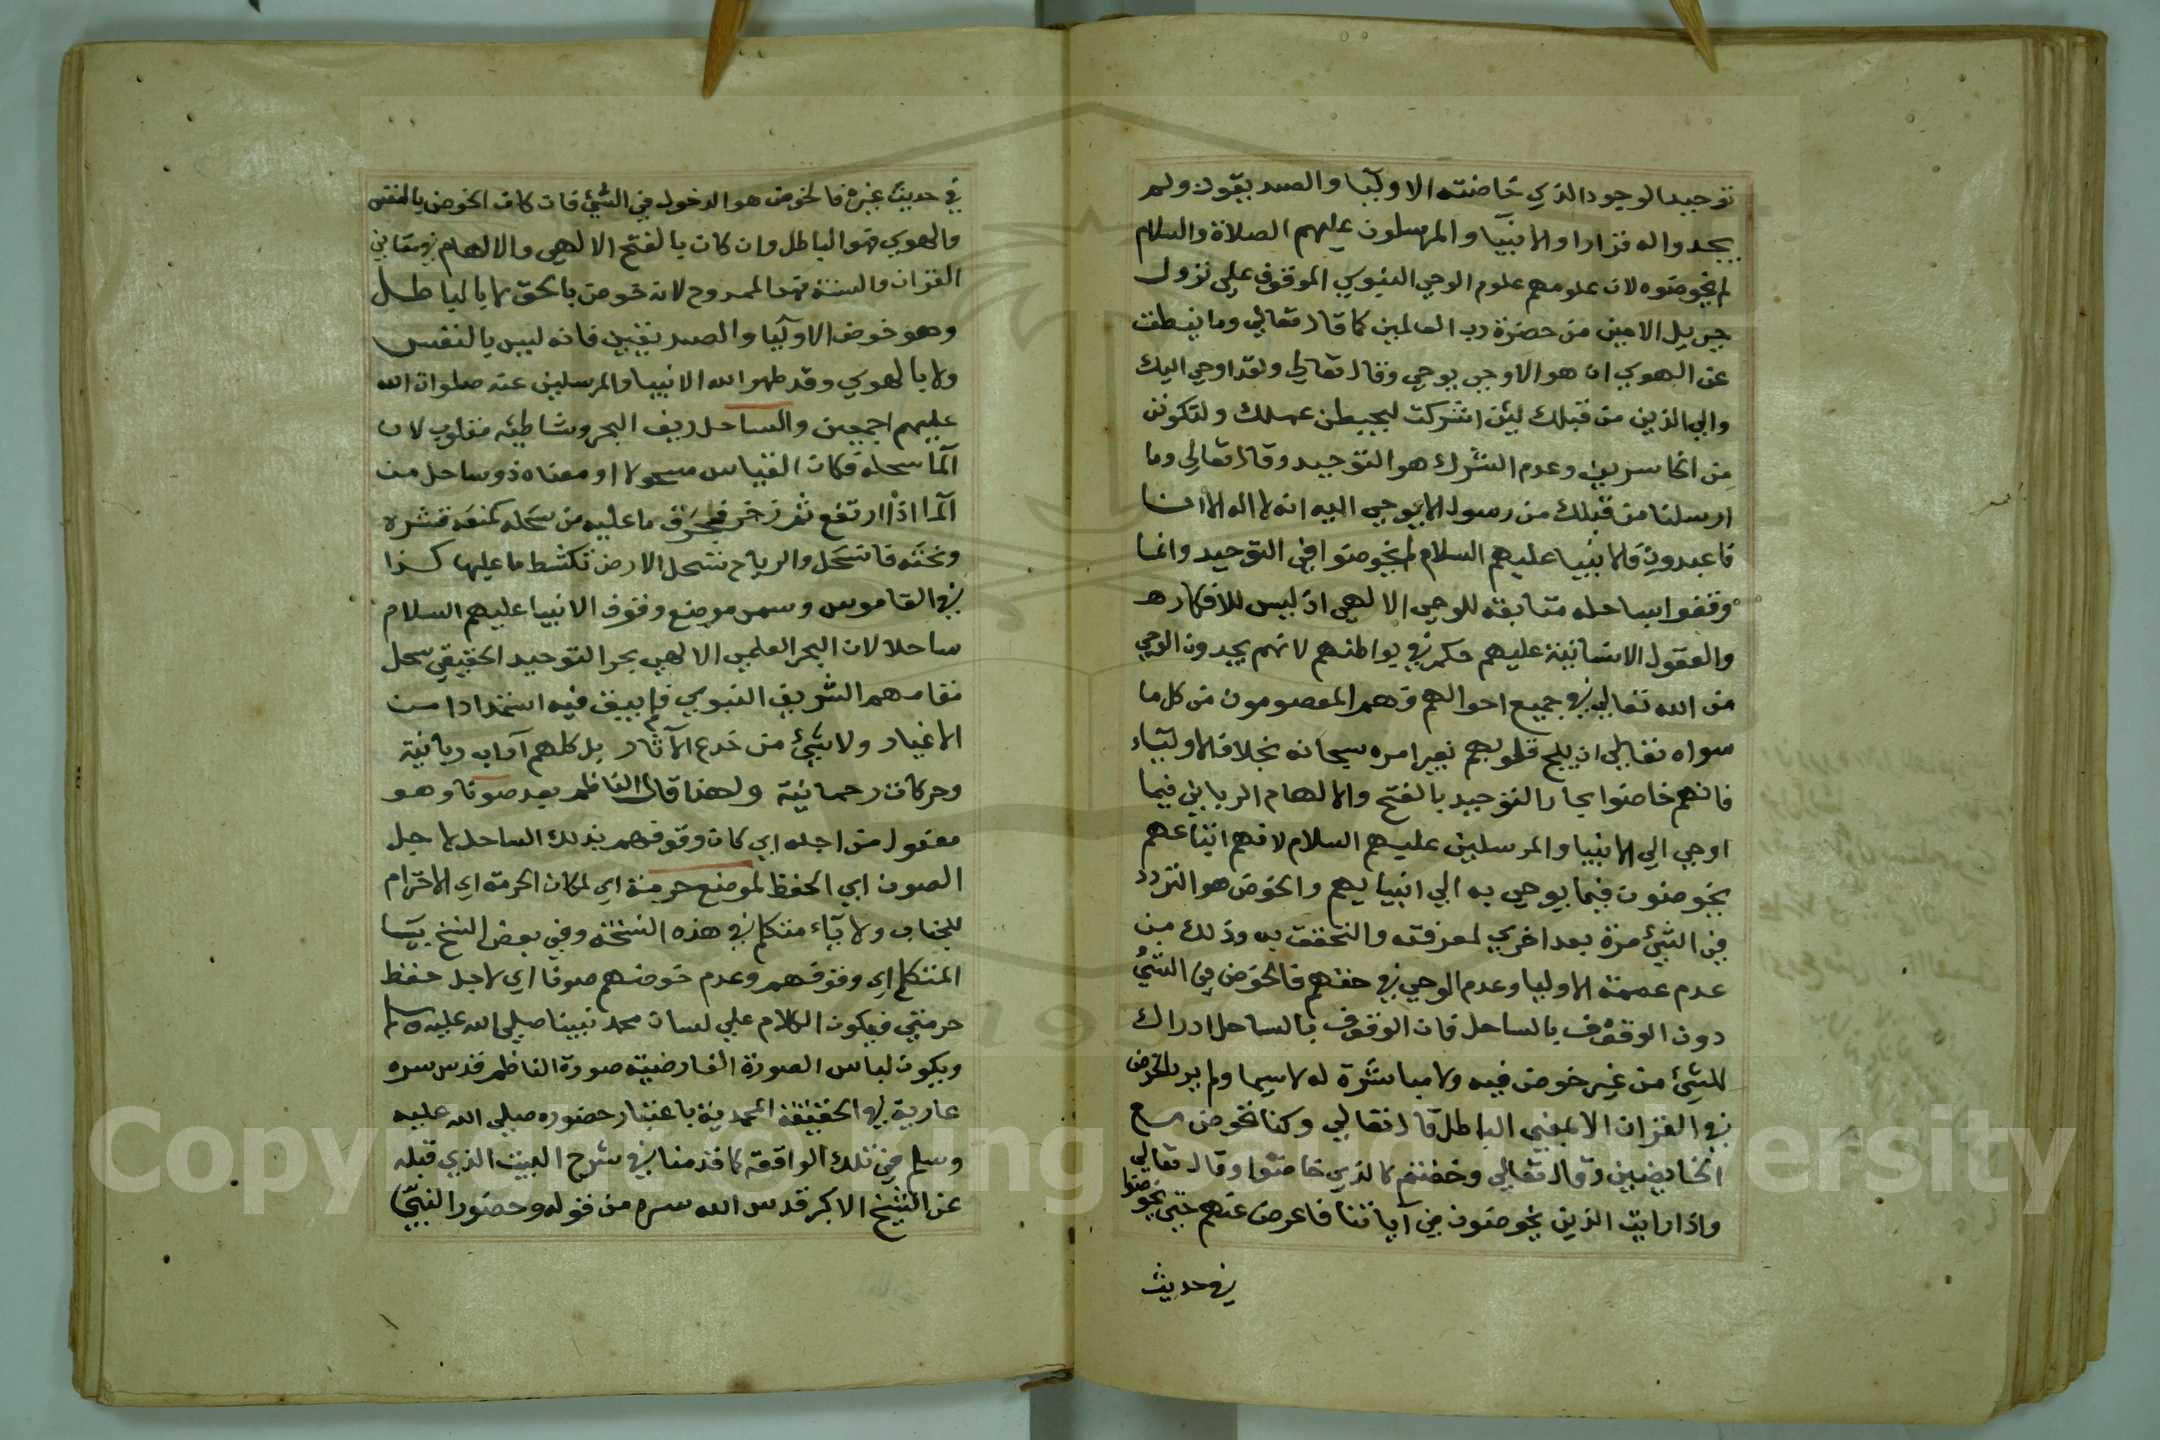 توحيد الوجود الذي خاضته الاوليا والصديقون ولم
يجدوا له قرارا والانبيا والمرسلون عليهم الصلاة والسلام
لم يخوضوه لان علومهم علوم الوحي النبوي الموقوف علي نزول
جبريل الامين من حضرة رب العالمين كما قال تعالي وما ينطق
عن الهوي ان هو الا وحي يوحي وقال تعالي ولقد اوحي اليك
والي الذين من قبلك لئن اشركت ليحبطن عملك ولتكونن
من الخاسرين وعدم الشرك هو التوحيد وقال تعالي وما
ارسلنا من قبلك من رسول الا يوحي اليه انه لا اله الا انا
فاعبدون فالانبيا عليهم السلام لم يخوضوا في التوحيد وانما
وقفوا بساحله متابعة للوحي الالهي اذ ليس للافكار
والعقول الانسانية عليهم حكم في بواطنهم لانهم يجدون الوحي
من الله تعالي في جميع احوالهم وهم المعصومون من كل ما
سواه تعالي ان يلج قلوبهم بغير امره سبحانه بخلاف الاولياء
فانهم خاضوا بحار التوحيد بالفتح والالهام الرباني فيما
اوحي الي الانبيا والمرسلين عليهم السلام لانهم اتباعهم
يخوضون فيما يوحي به الي انبيايهم والخوض هو التردد
في الشيء مرة بعد اخري لمعرفته والتحقق به وذلك من
عدم عصمة الاوليا وعدم الوحي في حقهم فالخوض في الشيء
دون الوقوف بالساحل فان الوقوف بالساحل ادراك
للشيء من غير خوض فيه ولا مباشرة له لاسيما ولم يرد الخوض
في القران الا بمعني الباطل قال تعالي وكنا نخوض مع
الخايضين وقال تعالي وخضتم كالذي خاضوا وقال تعالي
واذا رايت الذين يخوضون في آياتنا فاعرض عنهم حتي يخوضوا
في حديث
في حديث غيره فالخوض هو الدخول في الشيء فان كان الخوض بالنفس
والهوي فهو الباطل وان كان بالفتح الالهي والالهام في معاني
القران والسنة فهو الممدوح لانه خوض بالحق لا بالباطل
وهو خوض الاوليا والصديقين فانه ليس بالنفس
ولا بالهوي وقد طهر الله الانبيا والمرسلين عنه صلوات الله
عليهم اجمعين والساحل ريف البحر وشاطئه مقلوب لان
المآ سحله فكان القياس مسحولا او معناه ذو ساحل من
المآ اذا ارتفع ثم زخر فجرف ما عليه من سحله كمنعه قشره
ونحته فانسحل والرياح تسحل الارض تكشط ما عليها كذا
في القاموس وسمي موضع وقوف الانبيا عليهم السلام
ساحلا لان البحر العلمي الالهي بحر التوحيد الحقيقي سحل
مقامهم الشريف النبوي فلم يبق فيه استمدادا من
الاغيار ولا شيء من خدع الآثار بل كلهم آداب ربانية
وحركات رحمانية ولهذا قال الناظم بعد صونا وهو
مفعول من اجله اي كان وقوفهم بذلك الساحل لاجل
الصون اي الحفظ لموضع حرمة اي لمكان الحرمة اي الاحترام
للجناب ولا يآء متكلم في هذه النسخة وفي بعض النسخ بيا
المتكلم اي وقوفهم وعدم خوضهم صونا اي لاجل حفظ
حرمتي فيكون الكلام علي لسان محمد نبينا صلي الله عليه وسلم
ويكون لباس الصورة الفارضية صورة الناظم قدس سره
عارية في الحقيقة المحمدية باعتبار حضوره صلي الله عليه
وسلم في تلك الواقعة كما قدمنا في شرح البيت الذي قبله
عن الشيخ الاكبر قدس الله سره من قوله وحضور النبي
Copyright © King Saud University